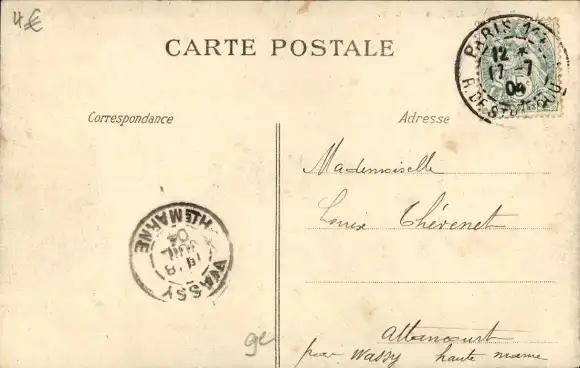 4€
CARTE POSTALE
PARIS
12 *
17 -7
04
Correspondance
Adresse
Mademoiselle
Louix Thévenet
WASSY
HTE MARNE
18
JUIL
04
Attancourt
par Wassy haute marne
ge